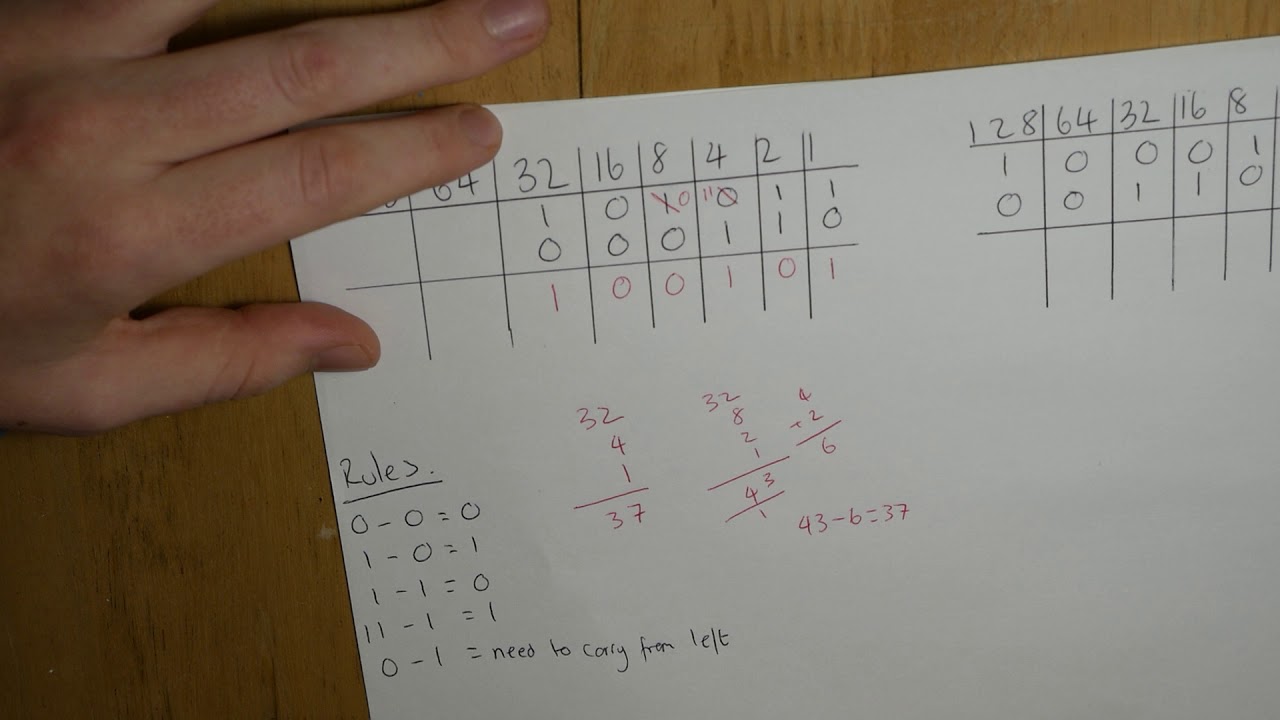 64 32 16 8 4 2 1
1 0 1 0 11 0 1 1
0 0 0 1 1 0
1 0 0 1 0 1
128 64 32 16 8
1 0 0 0 1
0 0 1 1 0
32
4
1
37
32
8
2
1
43
1
4
+2
6
43-6=37
Rules.
0 - 0 = 0
1 - 0 = 1
1 - 1 = 0
11 - 1 = 1
0 - 1 = need to carry from left